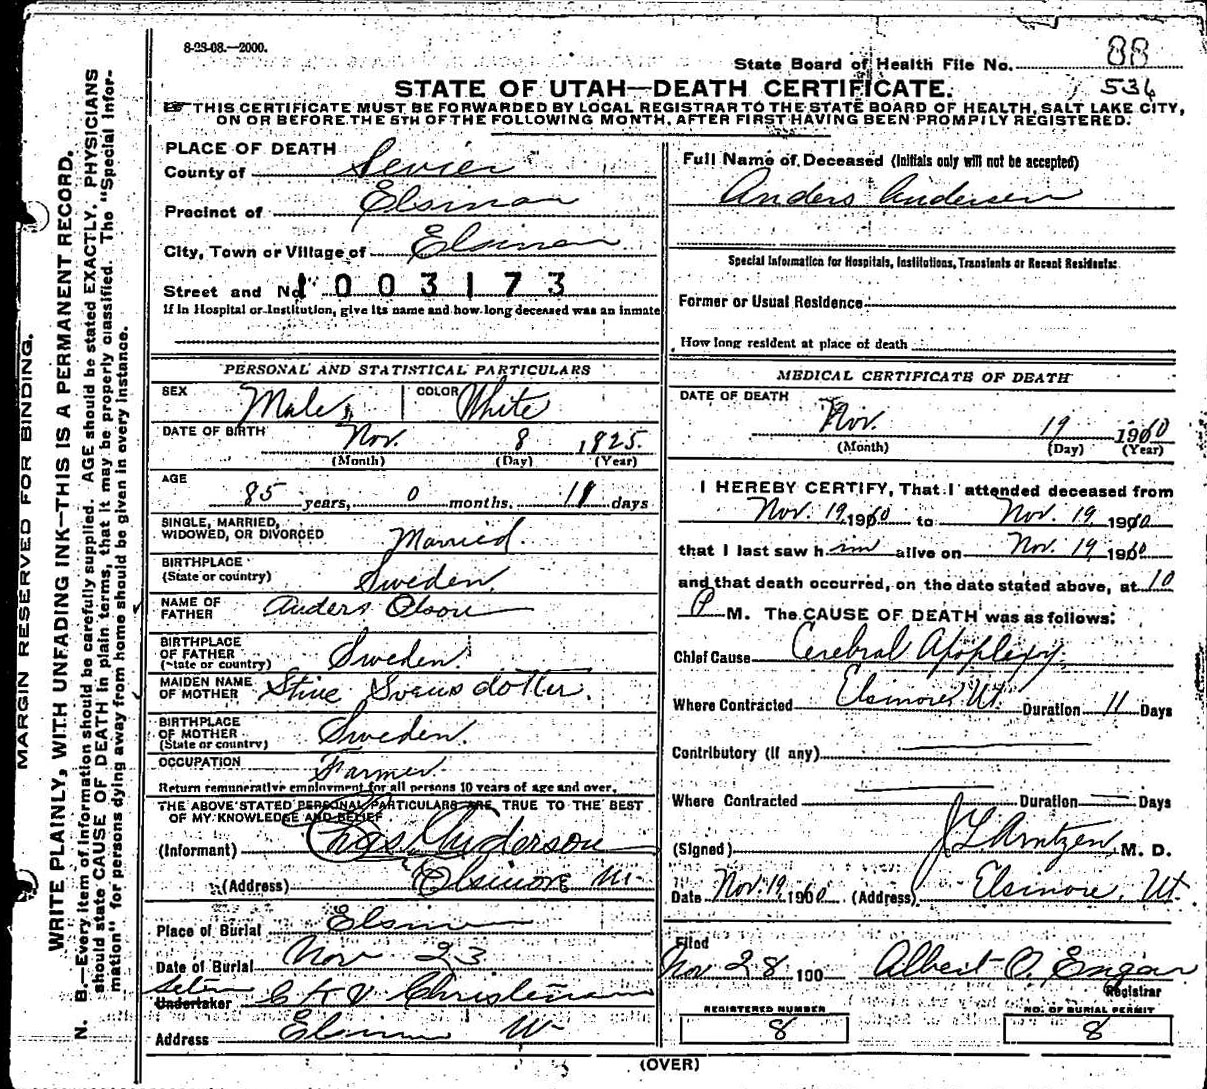 8-23-08.—2000.
State Board of Health File No. 88
534
STATE OF UTAH—DEATH CERTIFICATE.
THIS CERTIFICATE MUST BE FORWARDED BY LOCAL REGISTRAR TO THE STATE BOARD OF HEALTH, SALT LAKE CITY,
ON OR BEFORE THE 5TH OF THE FOLLOWING MONTH, AFTER FIRST HAVING BEEN PROMPTLY REGISTERED.
MARGIN RESERVED FOR BINDING.
WRITE PLAINLY, WITH UNFADING INK—THIS IS A PERMANENT RECORD.
N. B.—Every item of information should be carefully supplied. AGE should be stated EXACTLY. PHYSICIANS
should state CAUSE OF DEATH in plain terms, that it may be properly classified. The "Special Infor-
mation" for persons dying away from home should be given in every instance.
PLACE OF DEATH
County of Sevier
Precinct of Elsinore
City, Town or Village of Elsinore
Street and No. 1003173
If in Hospital or Institution, give its name and how long deceased was an inmate
PERSONAL AND STATISTICAL PARTICULARS
SEX Male COLOR White
DATE OF BIRTH Nov. 8 1825
(Month) (Day) (Year)
AGE
85 years, 0 months, 11 days
SINGLE, MARRIED,
WIDOWED, OR DIVORCED Married.
BIRTHPLACE
(State or country) Sweden.
NAME OF
FATHER Anders Olson
BIRTHPLACE
OF FATHER
(State or country) Sweden.
MAIDEN NAME
OF MOTHER Stine Svensdotter.
BIRTHPLACE
OF MOTHER
(State or country) Sweden.
OCCUPATION
Farmer.
Return remunerative employment for all persons 10 years of age and over.
THE ABOVE STATED PERSONAL PARTICULARS ARE TRUE TO THE BEST
OF MY KNOWLEDGE AND BELIEF
(Informant) Chas Anderson
(Address) Elsinore Ut.
Place of Burial Elsinore
Date of Burial Nov 23
Undertaker Christensen
Address Elsinore Ut
Full Name of Deceased (Initials only will not be accepted)
Anders Andersen
Special Information for Hospitals, Institutions, Transients or Recent Residents:
Former or Usual Residence
How long resident at place of death
MEDICAL CERTIFICATE OF DEATH
DATE OF DEATH
Nov. 19 1910
(Month) (Day) (Year)
I HEREBY CERTIFY, That I attended deceased from
Nov. 19 1910 to Nov. 19 1910
that I last saw him alive on Nov. 19 1910
and that death occurred, on the date stated above, at 10
P M. The CAUSE OF DEATH was as follows:
Chief Cause Cerebral Apoplexy.
Where Contracted Elsinore, Ut. Duration 11 Days
Contributory (if any)
Where Contracted Duration — Days
(Signed) J L Arntzen, M. D.
Date Nov. 19, 1910 (Address) Elsinore, Ut.
Filed
Nov 28 190 Albert O. Engar
Registrar
REGISTERED NUMBER
8
NO. OF BURIAL PERMIT
8
(OVER)